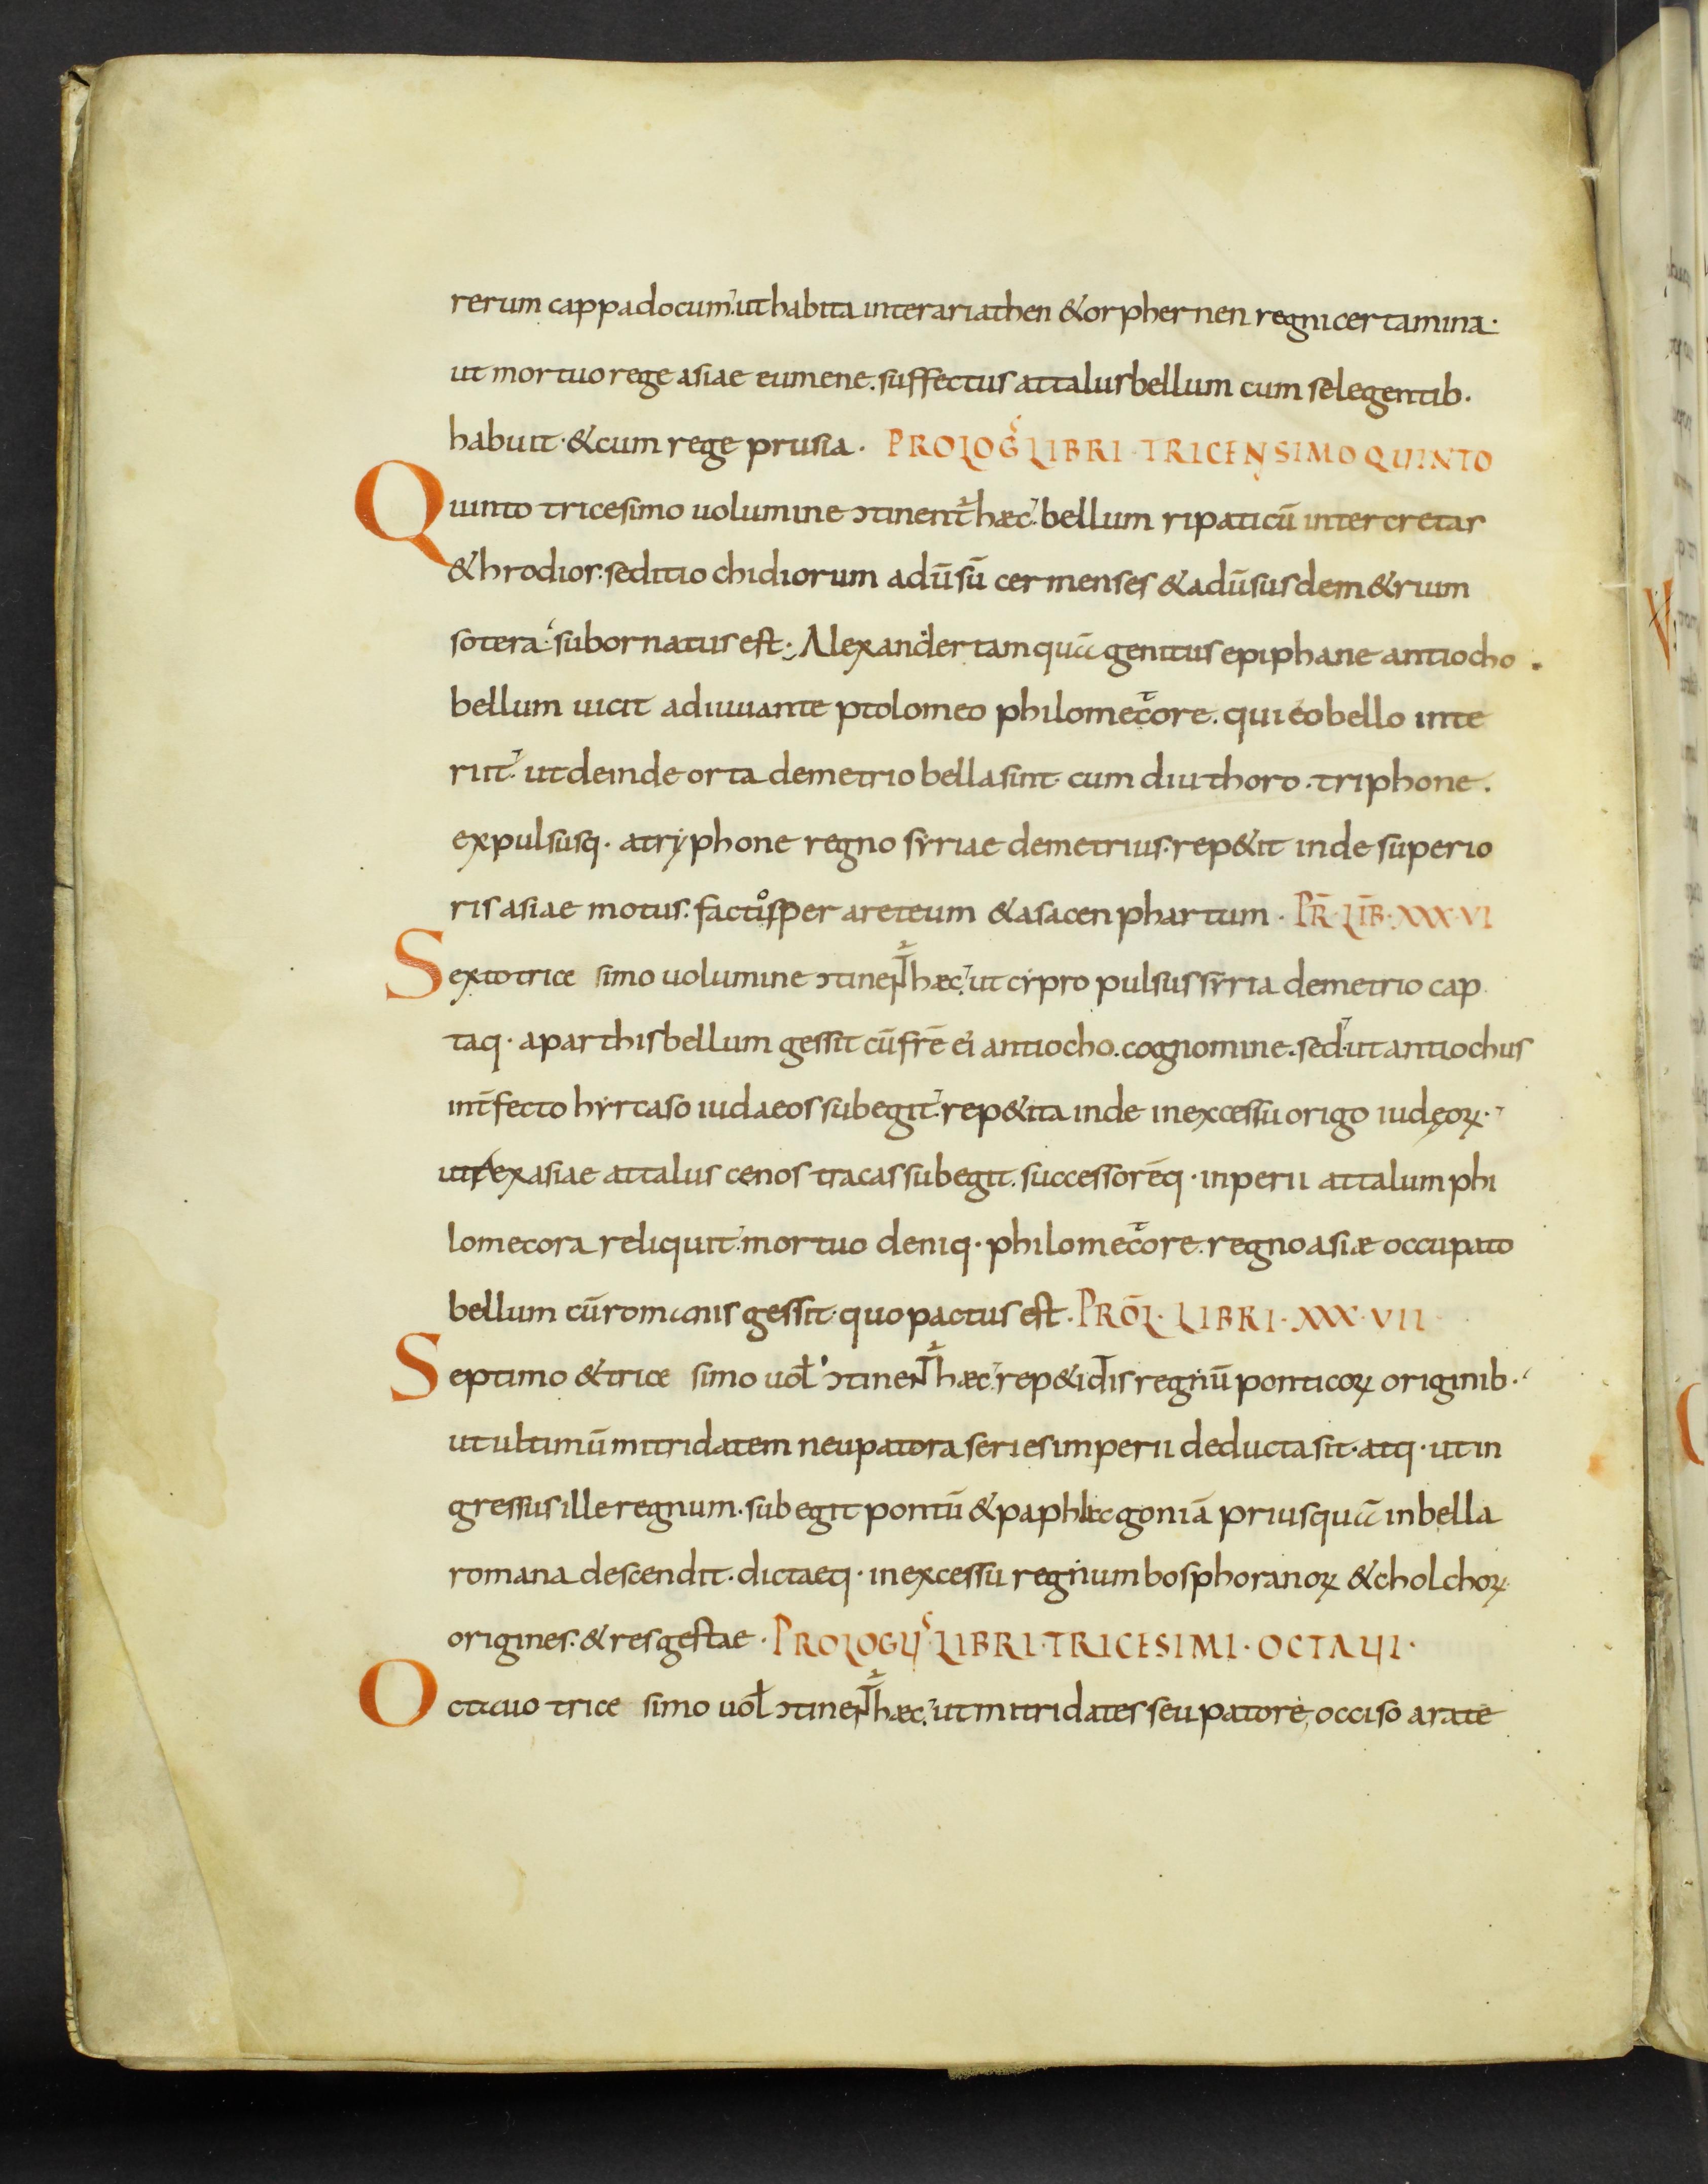 rerum cappadocum. ut habita inter ariathen & orphernen regni certamina.
ut mortuo rege asiae eumene. suffectus attalus bellum cum selegentib.
habuit. & cum rege prusia. PROLOG LIBRI TRICENSIMO QUINTO
Quinto tricesimo uolumine ↄtinent hæc. bellum ripaticū inter cretas
& hrodios. seditio chidiorum adūsū cermenses & adūsus dem&rium
sotera. subornatus est. Alexander tamquā genitus epiphane antiocho.
bellum uicit adiuuante ptolomeo philometore. qui eo bello inte
riit. ut deinde orta demetrio bella sint cum diuthoro. triphone.
expulsusq. a tryphone regno syriae demetrius. rep&it inde superio
ris asiae motus. factos per areteum & asacen phartum. PR̄. LIB̄. XXXVI
Sexto trice simo uolumine ↄtinent hæc. ut cypro pulsus syria demetrio cap
taq. a parthis bellum gessit cū frē ei antiocho. cognomine. sed. ut antiochus
int̄fecto hyrcaso iudaeos subegit. rep&ita inde in excessu origo iudęoꝝ.
ut rex asiae attalus cenos tracas subegit. successorēq. inperii attalum phi
lomecora reliquit. mortuo deniq. philometore. regno asiæ occupato
bellum cū romanis gessit. quo pactus est. PROL̄. LIBRI. XXXVII
Septimo & trice simo uoł ↄtinent hæc. rep&idis regnū ponticoꝝ originib.
ut ultimū mitridatem neupatora series imperii deducta sit. atq. ut in
gressus ille regnum. subegit pontū & paphlagoniā priusquā in bella
romana descendit. dictaeq. in excessu regnum bosphoranoꝝ & cholchoꝝ
origines. & res gestae. PROLOGUS LIBRI. TRICESIMI. OCTAUI.
Octauo trice simo uoł ↄtinent hæc. ut mitridates seupatore, occiso arate